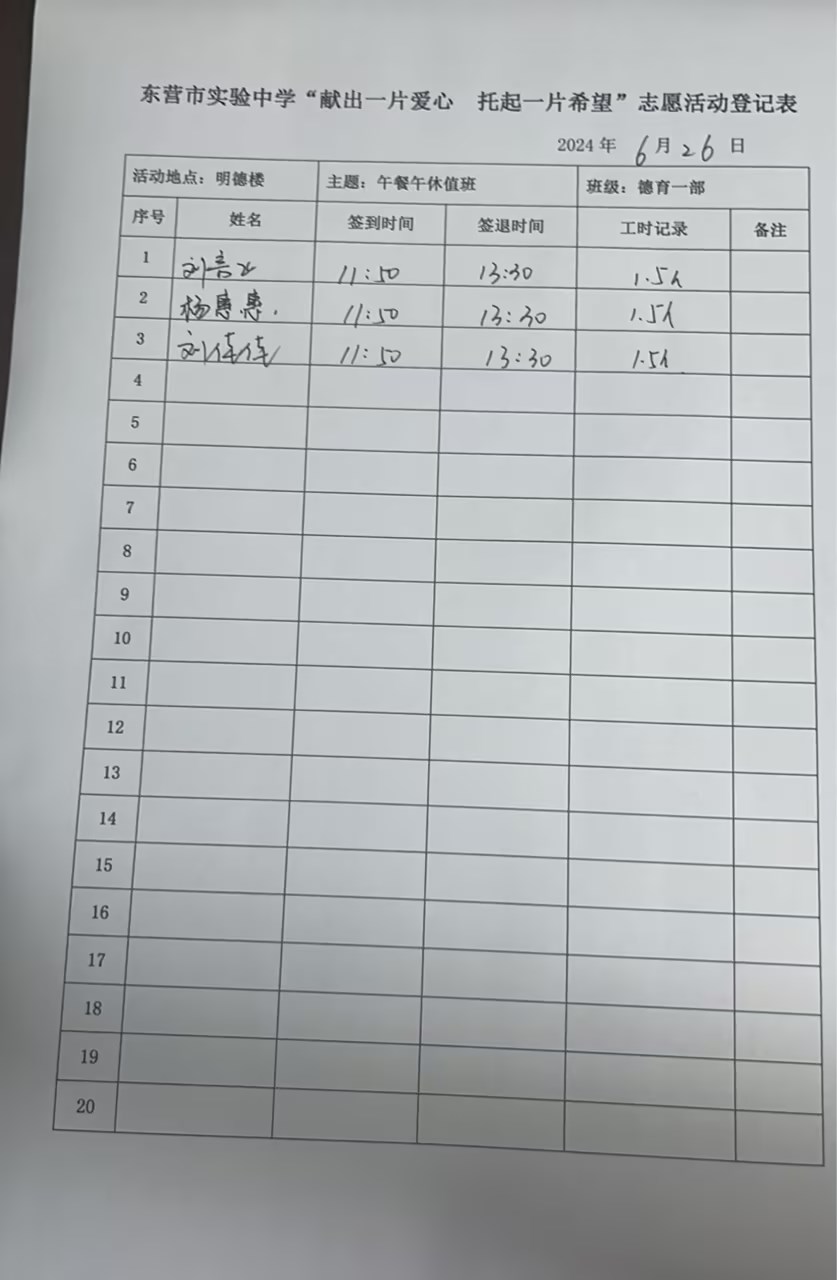 东营市实验中学“献出一片爱心 托起一片希望”志愿活动登记表
2024 年 6 月 26 日
活动地点：明德楼 主题：午餐午休值班 班级：德育一部
序号 姓名 签到时间 签退时间 工时记录 备注
1 刘 11:50 13:30 1.5h
2 杨惠惠. 11:50 13:30 1.5h
3 刘倩倩 11:50 13:30 1.5h
4
5
6
7
8
9
10
11
12
13
14
15
16
17
18
19
20